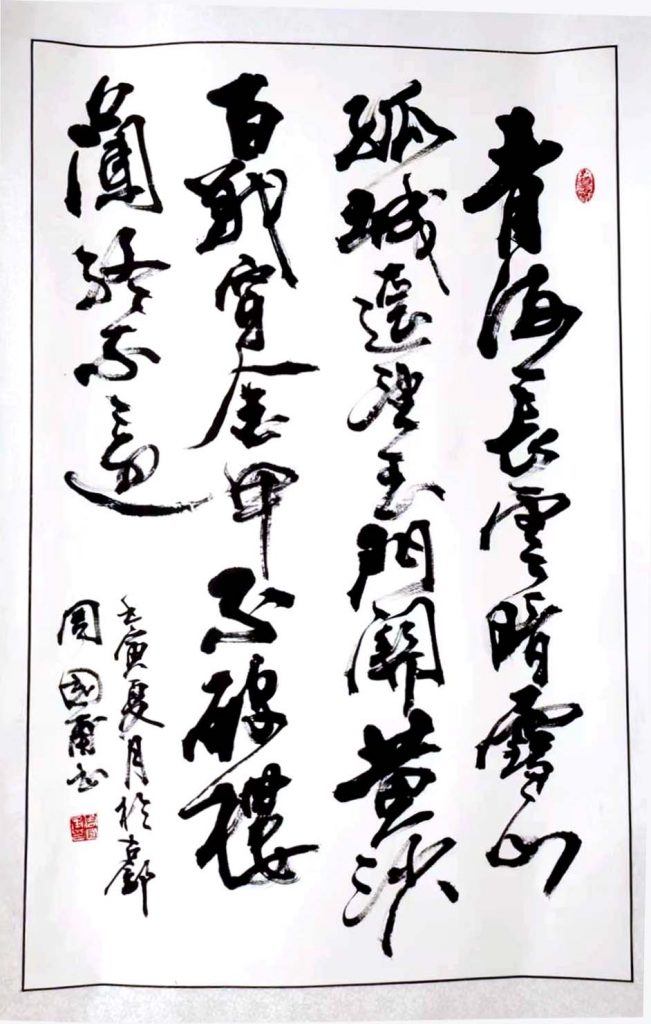 青海長雲暗雪山
孤城遥望玉門關黄沙
百戰穿金甲不破樓
蘭終不還
壬寅夏月於古
周國書